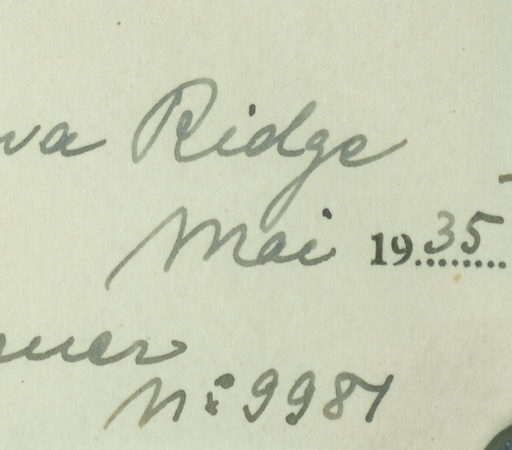 va Ridge
Mai 1935
N: 9981